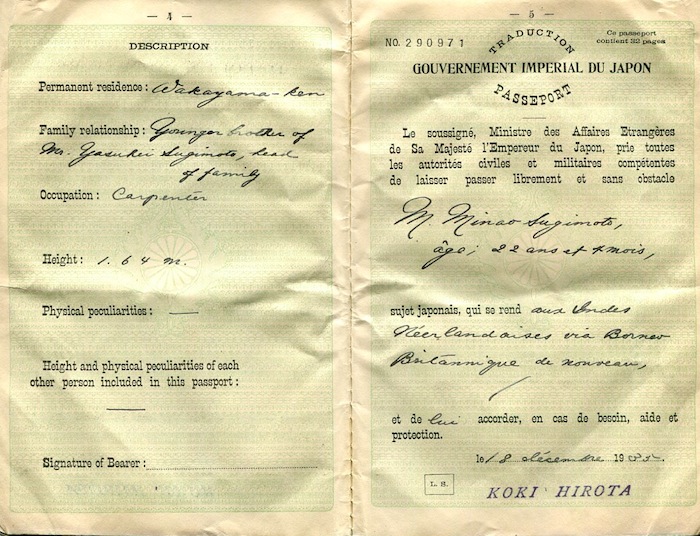 — 4 —
DESCRIPTION
Permanent residence: Wakayama-ken
Family relationship: Younger brother of
Mr. Yasuhei Sugimoto, head
of family
Occupation: Carpenter
Height: 1.64 m.
Physical peculiarities: —
Height and physical peculiarities of each
other person included in this passport:
—
Signature of Bearer:
— 5 —
NO. 290971
TRADUCTION
Ce passeport
contient 32 pages
GOUVERNEMENT IMPERIAL DU JAPON
PASSEPORT
Le soussigné, Ministre des Affaires Etrangères
de Sa Majesté l'Empereur du Japon, prie toutes
les autorités civiles et militaires compétentes
de laisser passer librement et sans obstacle
M. Minao Sugimoto,
âge; 22 ans et 7 mois,
sujet japonais, qui se rend aux Indes
Néerlandaises via Borneo
Britannique de nouveau,
et de lui accorder, en cas de besoin, aide et
protection.
le 18 décembre 1935
L. S.
KOKI HIROTA